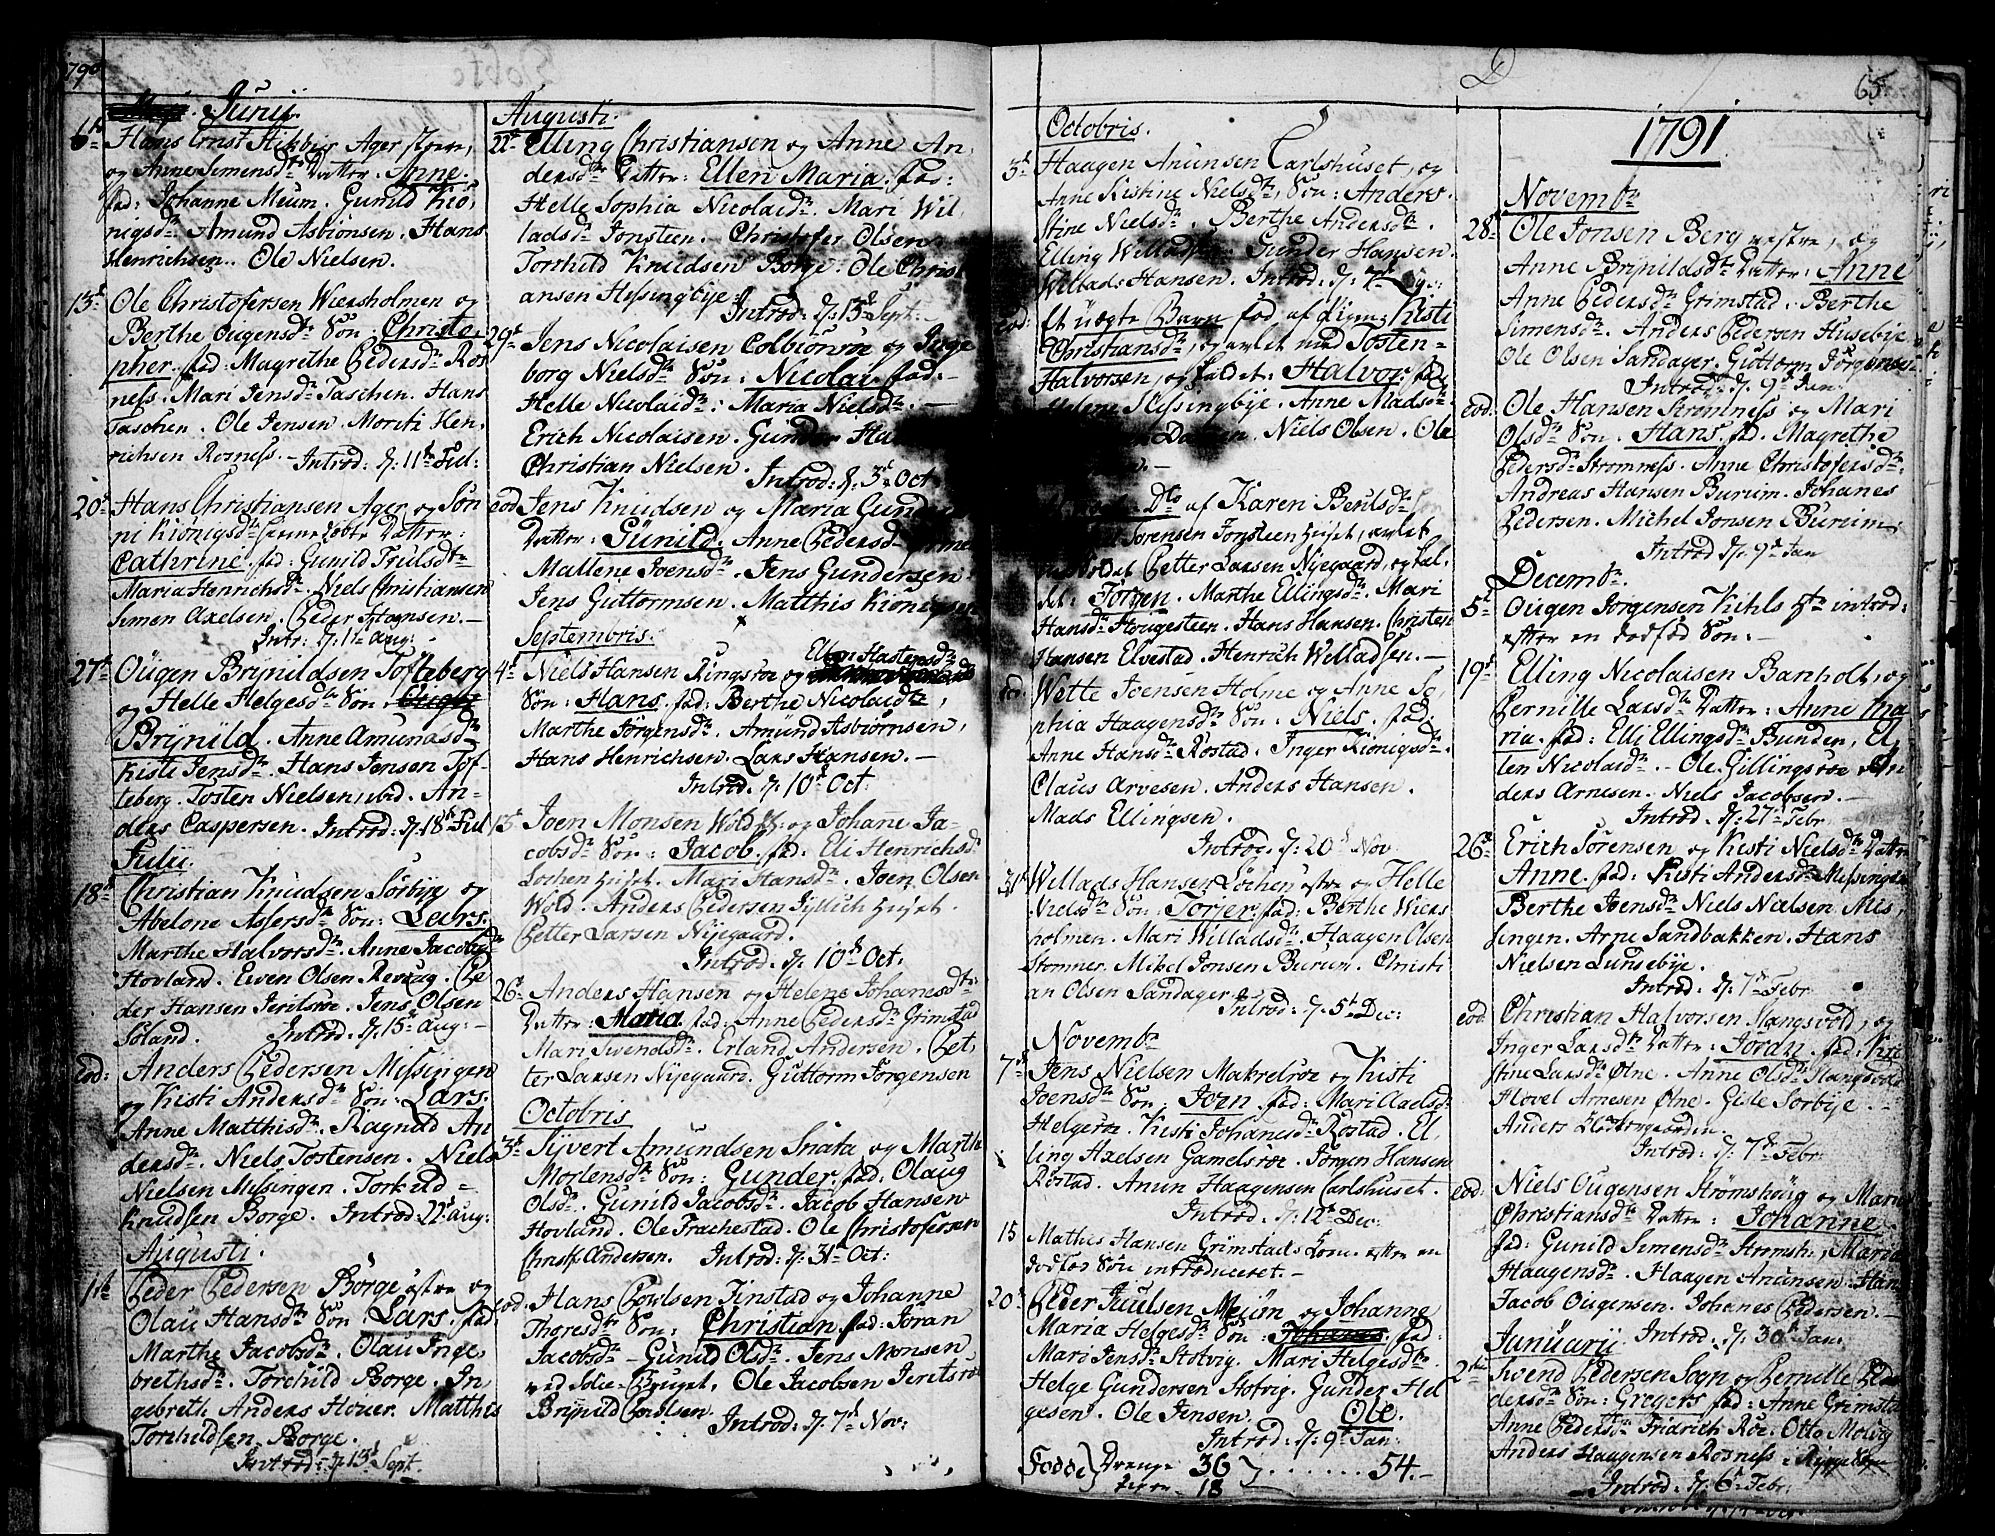 790
Junii.
6te Hans Ernst Hikbir Ager,
og Anne Simensdtr Datter: Anne.
fad: Johanne Meum. Gunild Kiö,
nigsdtr Amund Asbiönsen. Hans
Henrichsen. Ole Nielsen.
13t Ole Christofersen Wiersholmen og
Berthe Ougensdtr Sön: Christo,
pher. fad: Magrethe Pedersdtr Ros
ness. Mari Jensdtr Taschen. Hans
Taschen. Ole Jensen. Moriti Hen,
richsen Rosness. Introd: d: 11te Jul:
20t Hans Christiansen Ager og Sön
ni Kiönigsdtr Datter:
Cathrine. fad: Gunild Truls dtr
Maria Henrichsdtr. Niels Christiansen
Simen Axelsen. Peder Hansen.
Intr: d: 1te Aug:
27t Ougen Brynildsen Tofteberg
og Helle Helgesdtr Sön:
Brynild. Anne Amundsdtr
Kisti Jensdtr. Hans Jensen Tof-
teberg. Tosten Nielsen ibid. An-
ders Caspersen. Introd: d: 18t Jul
Julii.
18t Christian Knudsen Sörbye og
Abelone Asfersdtr Sön: Lars.
Marthe Halvorsdtr. Anne Jacobsdtr
Hovland. Even Olsen Revaug. Pe
der Hansen Jeritsröe. Jens Olsen
Soland. Introd: d: 15t Aug:
Eod: Anders Pedersen Missingen
og Kisti Andersdtr Sön: Lars.
Anne Matthisdtr. Ragnild An
dersdtr. Niels Tostensen. Niels
Nielsen Missingen. Torkild
Knudsen Borge. Introd: 22t Aug:
Augusti.
1te Peder Pedersen Borge östre og
Olau Hansdtr Sön: Lars. fad:
Marthe Jacobsdtr. Olau Inge,
brethsdtr. Torchild Borge. In
gebreth. Anders Houer. Matthis
Torchildsen Borge.
Introd: d: 13t Sept.
Augusti.
22t Elling Christiansen og Anne An,
dersdtr Datter: Ellen Maria. fad:
Helle Sophia Nicolaidtr. Mari Wil,
ladsdtr Jonsteen. Christofer Olsen
Torchild Knudsen Borge. Ole Christ
ansen Hessingbye:
Introd: d: 13t Sept.
29t Jens Nicolaisen Colbiönröe og Inge
borg Nielsdtr Sön: Nicolai. fad:
Helle Nicolaidtr. Maria Nielsdtr.
Erich Nicolaisen. Gunder Han
Christian Nielsen. Introd: d: 3t Oct
eod Jens Knudsen og Maria Gund
Datter: Gunild. Anne Pedersd
Mallene Joensdtr. Jens Gundersen
Jens Guttormsen. Matthis Kiönigsen
Septembris.
4t Niels Hansen Ringsröe og Ellen Hastensdtr
Sön: Hans. fad: Berthe Nicolaidtr,
Marthe Jörgensdtr. Amund Asbiörnsen,
Hans Henrichsen. Lars Hansen.
Introd. d: 10t Oct
13t Joen Monsen Wold og Johane Ja-
cobsdtr Sön: Jacob. fad: Eli Henrichsd
Löchen huset. Mari Hansdtr. Joen Olsen
Wold. Anders Pedersen Jyllich huset.
Petter Larsen Nyegaard.
Introd. d: 10t Oct.
26t Anders Hansen og Helene Johanesdtr:
Datter: Maria. fad: Anne Pedersdtr Grimstad
Mari Svendsdtr. Erland Andersen. Pet,
ter Larsen Nyegaard. Guttorm Jörgensen
Octobris
3t Syvert Amundsen Snata og Marthe
Mortensdtr Sön: Gunder. fad: Olaug
Olsdtr. Gunild Jacobsdtr. Jacob Hansen
Hovland. Ole Trachestad. Ole Christofersen
Christs Andersen. Introd: d: 31t Oct:
eod: Hans Powlsen Tinstad og Johanne
Thoresdtr Sön: Christian. fad: Joran
Jacobsdtr. Gunild Olsdtr. Jens Monsen
ved Solie-Bruget. Ole Jacobsen Jeritsröe
Brynild Powlsen.
Introd: d: 7t Nov:
D
65
Octobris.
3t Haagen Anunsen Carlshuset, og
Anne Kistine Nielsdtr, Sön: Anders.
Stine Nielsdtr. Berthe Andersdtr.
Elling Willadsen. Gunder Hansen.
Willads Hansen. Introd: d: 7t
eod: Et uægte Barn fød af Pigen: Kisti
Christiansdtr, og avlet med Tosten
Halvorsen, og kaldet: Halvor. fad:
Helene Missingbye. Anne Madsdtr.
Niels Olsen. Ole
Dto af Karen Bentsdtr
Sörensen Jonsteen huset, avlet
Petter Larsen Nyegaard, og kal,
det: Jörgen. Marthe Ellingsdtr. Mari
Hansdtr Hougesteen. Hans Hansen. Christen
Hansen Elvestad. Henrich Willadsen.
eod Wette Joensen Holme og Anne So,
phia Haagensdtr Sön: Niels. fad:
Anne Hansdtr Röstad. Inger Kiönigsdtr.
Claus Arvesen. Anders Hansen.
Mads Ellingsen.
Introd. d: 20t Nov:
31t Willads Hansen Löchen östre og Helle
Nielsdtr Sön: Torjer. fad: Berthe Wiers
holmen. Mari Willadsdtr. Haagen Olsen
Stomner. Mikel Jonsen Burum. Christi
an Olsen Sandager.
Introd: d: 5t Dec:
Novembr
7t Jens Nielsen Makrelröe og Kisti
Joensdtr Sön: Joen. fad: Mari Axelsd:
Helgeröe. Kisti Johanesdtr Röstad. El,
ling Axelsen Gamelsröe. Jörgen Hansen
Röstad. Anun Haagensen Carlshuset.
Introd. d: 12t Dec:
15 Mathis Hansen Grimstads Kone efter en
dödfød Sön introduceret.
20t Peder Juulsen Meum og Johanne
Maria Helgesdtr Sön: Johanes. fad:
Mari Jensdtr Stotvig. Mari Helgesdtr.
Helge Gundersen Stotvig. Gunder Hel
gesen. Ole Jensen. Ole.
Introd: d: 9t Jan:
Fødde Drenge 36
Piger 18 ...... 54.
1791
Novembr
28t Ole Jonsen Berg vestre, og
Anne Brynildsdtr Datter: Anne
Anne Pedersdtr Grimstad. Berthe
Simensdtr. Anders Pedersen Husebye
Ole Olsen Sandager. Guttorm Jörgensen
Introd: d: 9t Jan:
eod: Ole Hansen Strömness og Mari
Olsdtr Sön: Hans. fad. Magrethe
Pedersdtr Strömness. Anne Christofersdtr.
Andreas Hansen Burum. Johanes
Pedersen. Michel Jonsen Burum.
Introd d: 9t Jan
Decembr.
5t Ougen Jörgensen Kihls H. introd:
efter en dødfød Sön:
19t Elling Nicolaisen Banholt, og
Pernille Larsdtr Datter: Anne Ma
ria. fad: Elli Ellingsdtr Bunden, El,
len Nicolaidtr. Ole Gillingsröe. An
ders Arnesen. Niels Jacobsen.
Introd: d: 27t Febr
26t Erich Sörensen og Kisti Nielsdtr Datter
Anne. fad: Kisti Andersdtr Missingen
Berthe Joensdtr Niels Nielsen Mis,
singen. Arne Sandbakken. Hans
Nielsen Lundebye.
Introd: d: 7t Febr
eod: Christian Halvorsen Slangsvold, og
Inger Larsdtr Datter: Joran. fad: Kri
stine Larsdtr Ölne. Anne Olsdtr Slangsvold
Hovel Arnesen Ölne. Gisle Sorbye.
Anders
Introd: d: 7t Febr:
eod: Niels Ougensen Strömshoug og Maria
Christiansdtr Datter: Johanne.
fad: Gunild Simensdtr Strömsh: Maria
Haagensdtr. Haagen Anunsen. Hans
Jacob Ougensen. Johanes Pedersen.
Introd. d: 30t Jan:
Januarii
2den Svend Pedersen Sogn og Pernille Pe
dersdtr Sön: Gregers fad: Anne Grimstad
Anne Pedersdtr Fridrich Röe. Otto Molvig
Anders Haagensen Rosness.
Introd: d: 6t Febr: